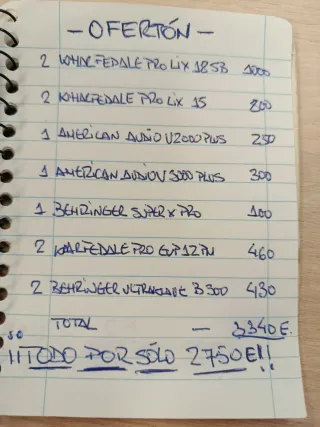 - OFERTÓN -
2 WHARFEDALE PRO LIX 18SB 1000
2 WHARFEDALE PRO LIX 15 800
1 AMERICAN AUDIO V2000 PLUS 250
1 AMERICAN AUDIO V3000 PLUS 300
1 BEHRINGER SUPER X PRO 100
2 WARFEDALE PRO EVP 12 PM 460
2 BEHRINGER ULTRAWAVE B300 430
TOTAL - 3340 E.
¡¡TODO POR SÓLO 2750E!!